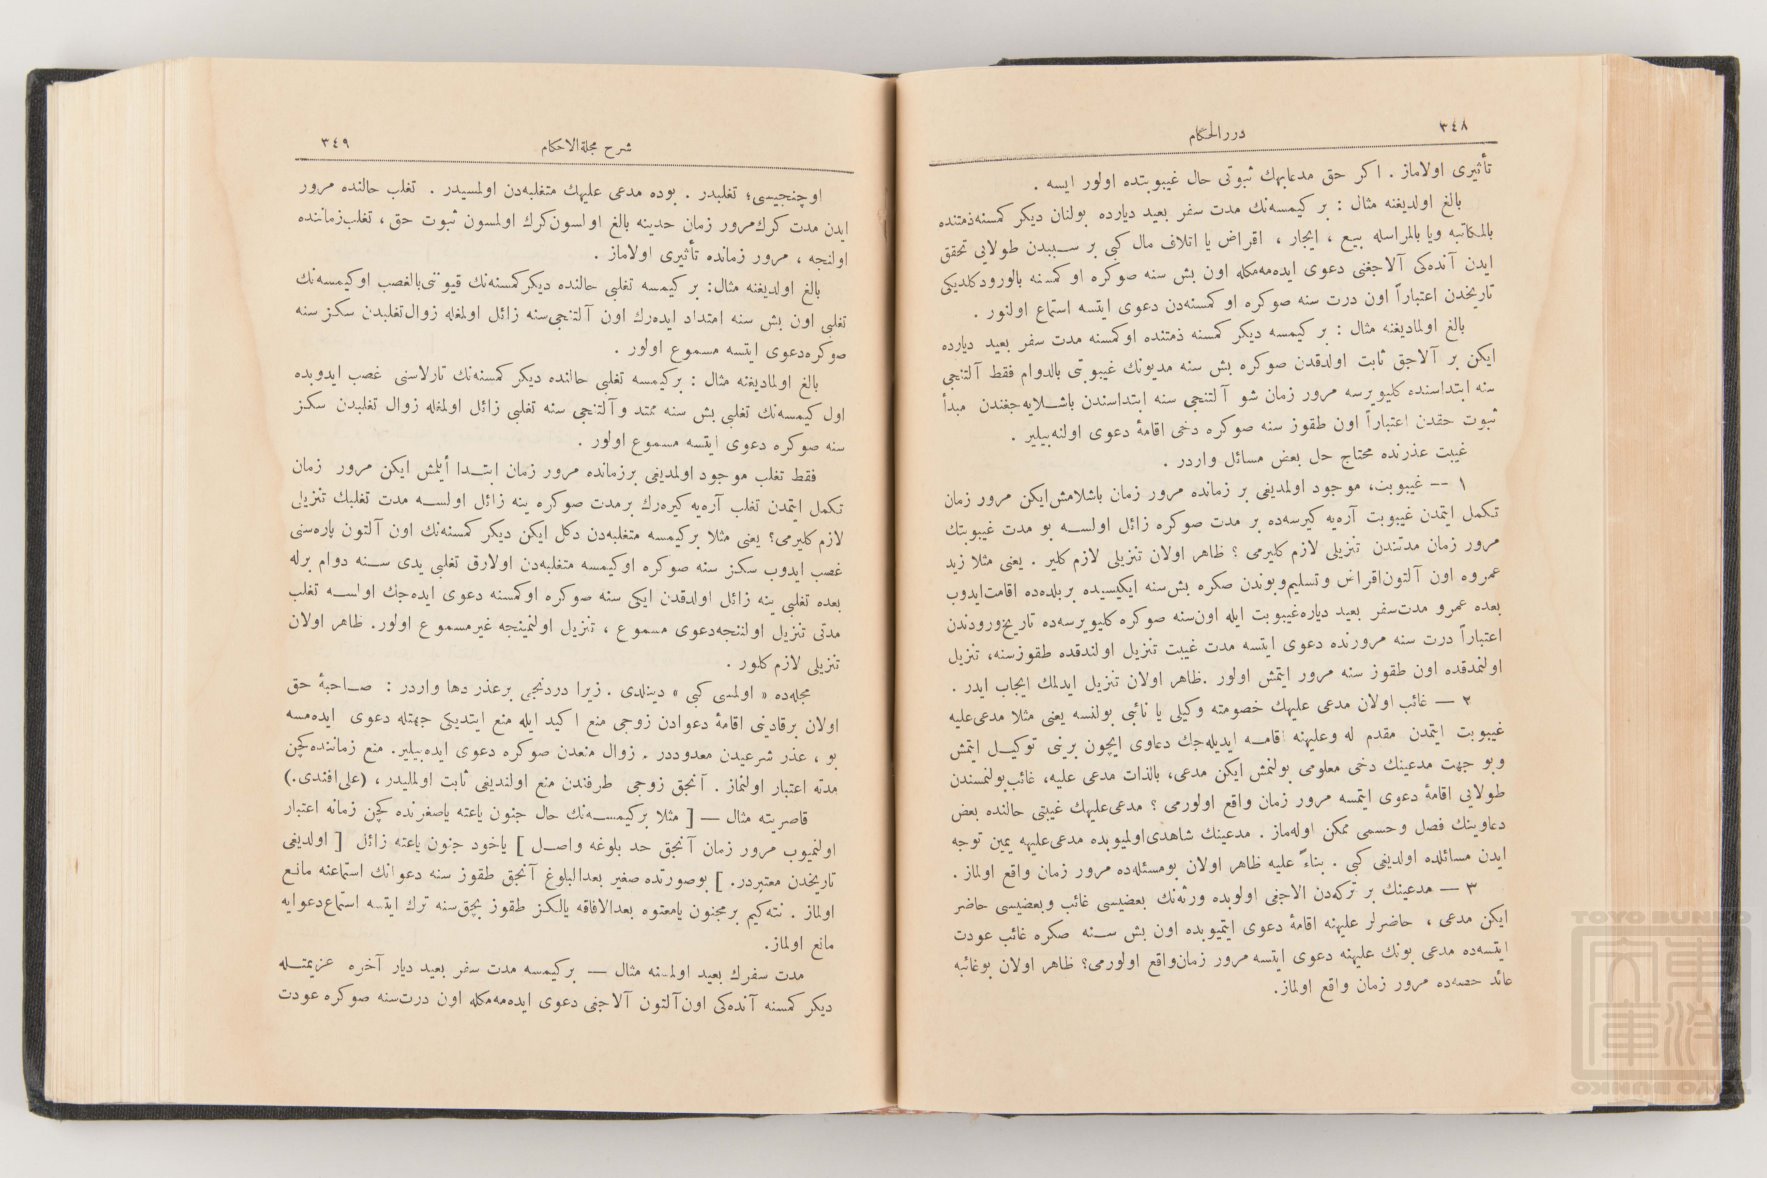 ٣٤٨
دررالحكام
تأثیری اولاماز . اكر حق مدعابهك ثبوتی حال غیبوبتده اولور ایسه .
بالغ اولدیغنه مثال : بر كیمسه‌نك مدت سفر بعید دیارده بولنان دیكر كمسنه‌ذمتنده
بالمكاتبه ویا بالمراسله بیع ، ایجار ، اقراض یا اتلاف مال كبی بر سببدن طولایی تحقق
ایدن آنده‌كی آلاجغنی دعوی ایده‌مه‌مكله اون بش سنه صوكره او كمسنه بالورودكلدیكی
تاریخدن اعتباراً اون درت سنه صوكره او كمسنه‌دن دعوی ایتسه استماع اولنور .
بالغ اولمادیغنه مثال : بر كیمسه دیكر كمسنه ذمتنده اوكمسنه مدت سفر بعید دیارده
ایكن بر آلاجق ثابت اولدقدن صوكره بش سنه مدیونك غیبوبتی بالدوام فقط آلتنجی
سنه ابتداسنده كلیویرسه مرور زمان شو آلتنجی سنه ابتداسندن باشلایه‌جغندن مبدأ
ثبوت حقدن اعتباراً اون طقوز سنه صوكره دخی اقامهٔ دعوی اولنه‌بیلیر .
غیبت عذرنده محتاج حل بعض مسائل واردر .
١ — غیبوبت، موجود اولمدیغی بر زمانده مرور زمان باشلامش‌ایكن مرور زمان
تكمل ایتمدن غیبوبت آره‌یه كیرسه‌ده بر مدت صوكره زائل اولسه بو مدت غیبوبتك
مرور زمان مدتندن تنزیلی لازم كلیرمی ؟ ظاهر اولان تنزیلی لازم كلیر . یعنی مثلا زید
عمروه اون آلتون‌اقراض وتسلیم‌وبوندن صكره بش‌سنه ایكیسیده بربلده‌ده اقامت‌ایدوب
بعده عمرو مدت‌سفر بعید دیاره‌غیبوبت ایله اون‌سنه صوكره كلیویرسه‌ده تاریخ‌ورودندن
اعتباراً درت سنه مرورنده دعوی ایتسه مدت غیبت تنزیل اولندقده طقوزسنه، تنزیل
اولنمدقده اون طقوز سنه مرور ایتمش اولور .ظاهر اولان تنزیل ایدلمك ایجاب ایدر .
٢ — غائب اولان مدعی علیهك خصومته وكیلی یا نائبی بولنسه یعنی مثلا مدعی‌علیه
غیبوبت ایتمدن مقدم له وعلیهنه اقامه ایدیله‌جك دعاوی ایچون برینی توكیل ایتمش
وبو جهت مدعینك دخی معلومی بولنمش ایكن مدعی، بالذات مدعی علیه، غائب‌بولنمسندن
طولایی اقامهٔ دعوی ایتمسه مرور زمان واقع اولورمی ؟ مدعی‌علیهك غیبتی حالنده بعض
دعاوینك فصل وحسمی ممكن اوله‌ماز . مدعینك شاهدی‌اولمیوبده مدعی‌علیهه یمین توجه
ایدن مسائلده اولدیغی كبی . بناءً علیه ظاهر اولان بومسئله‌ده مرور زمان واقع اولماز .
٣ — مدعینك بر تركه‌دن الاجغی اولوبده ورثه‌نك بعضیسی غائب وبعضیسی حاضر
ایكن مدعی ، حاضرلر علیهنه اقامهٔ دعوی ایتمیوبده اون بش سنه صكره غائب عودت
ایتسه‌ده مدعی بونك علیهنه دعوی ایتسه مرور زمان‌واقع اولورمی؟ ظاهر اولان بوغائبه
عائد حصه‌ده مرور زمان واقع اولماز.
شرح مجلةالاحكام
٣٤٩
اوچنجیسی؛ تغلبدر . بوده مدعی علیهك متغلبه‌دن اولمسیدر . تغلب حالنده مرور
ایدن مدت كرك‌مرور زمان حدینه بالغ اولسون‌كرك اولمسون ثبوت حق ، تغلب‌زماننده
اولنجه ، مرور زمانده تأثیری اولاماز .
بالغ اولدیغنه مثال: بر كیمسه تغلبی حالنده دیكركمسنه‌نك قیوننی‌بالغصب اوكیمسه‌نك
تغلبی اون بش سنه امتداد ایده‌رك اون آلتنجی‌سنه زائل اولمغله زوال‌تغلبدن سكز سنه
صوكره‌دعوی ایتسه مسموع اولور .
بالغ اولمادیغنه مثال : بركیمسه تغلبی حالنده دیكر كمسنه‌نك تارلاسنی غصب ایدوبده
اول كیمسه‌نك تغلبی بش سنه ممتد وآلتنجی سنه تغلبی زائل اولمغله زوال تغلبدن سكز
سنه صوكره دعوی ایتسه مسموع اولور .
فقط تغلب موجود اولمدیغی برزمانده مرور زمان ابتدا أیلمش ایكن مرور زمان
تكمل ایتمدن تغلب آره‌یه كیره‌رك برمدت صوكره ینه زائل اولسه مدت تغلبك تنزیلی
لازم كلیرمی؟ یعنی مثلا بركیمسه متغلبه‌دن دكل ایكن دیكر كمسنه‌نك اون آلتون پاره‌سنی
غصب ایدوب سكز سنه صوكره اوكیمسه متغلبه‌دن اولارق تغلبی یدی سنه دوام برله
بعده تغلبی ینه زائل اولدقدن ایكی سنه صوكره اوكمسنه دعوی ایده‌جك اولسه تغلب
مدتی تنزیل اولننجه‌دعوی مسموع ، تنزیل اولنمینجه غیرمسموع اولور. ظاهر اولان
تنزیلی لازم كلور .
مجله‌ده « اولمسی كبی » دینلدی . زیرا دردنجی برعذر دها واردر : صاحبهٔ حق
اولان برقادینی اقامهٔ دعوادن زوجی منع اكید ایله منع ایتدیكی جهتله دعوی ایده‌مسه
بو ، عذر شرعیدن معدوددر . زوال منعدن صوكره دعوی ایده‌بیلیر. منع زماننده‌كچن
مدته اعتبار اولنماز . آنجق زوجی طرفندن منع اولندیغی ثابت اولملیدر ، (علی‌افندی.)
قاصریته مثال — [ مثلا بركیمسه‌نك حال جنون یاعته یاصغرنده كچن زمانه اعتبار
اولنمیوب مرور زمان آنجق حد بلوغه واصل ] یاخود جنون یاعته زائل [ اولدیغی
تاریخدن معتبردر. ] بوصورتده صغیر بعدالبلوغ آنجق طقوز سنه دعوانك استماعنه مانع
اولماز . نته‌كیم برمجنون یامعتوه بعدالافاقه یالكز طقوز بچق‌سنه ترك ایتسه استماع‌دعوایه
مانع اولماز.
مدت سفرك بعید اولمسنه مثال — بركیمسه مدت سفر بعید دیار آخره عزیمتله
دیكر كمسنه آنده‌كی اون‌آلتون آلاجغی دعوی ایده‌مه‌مكله اون درت‌سنه صوكره عودت
TOYO BUNKO